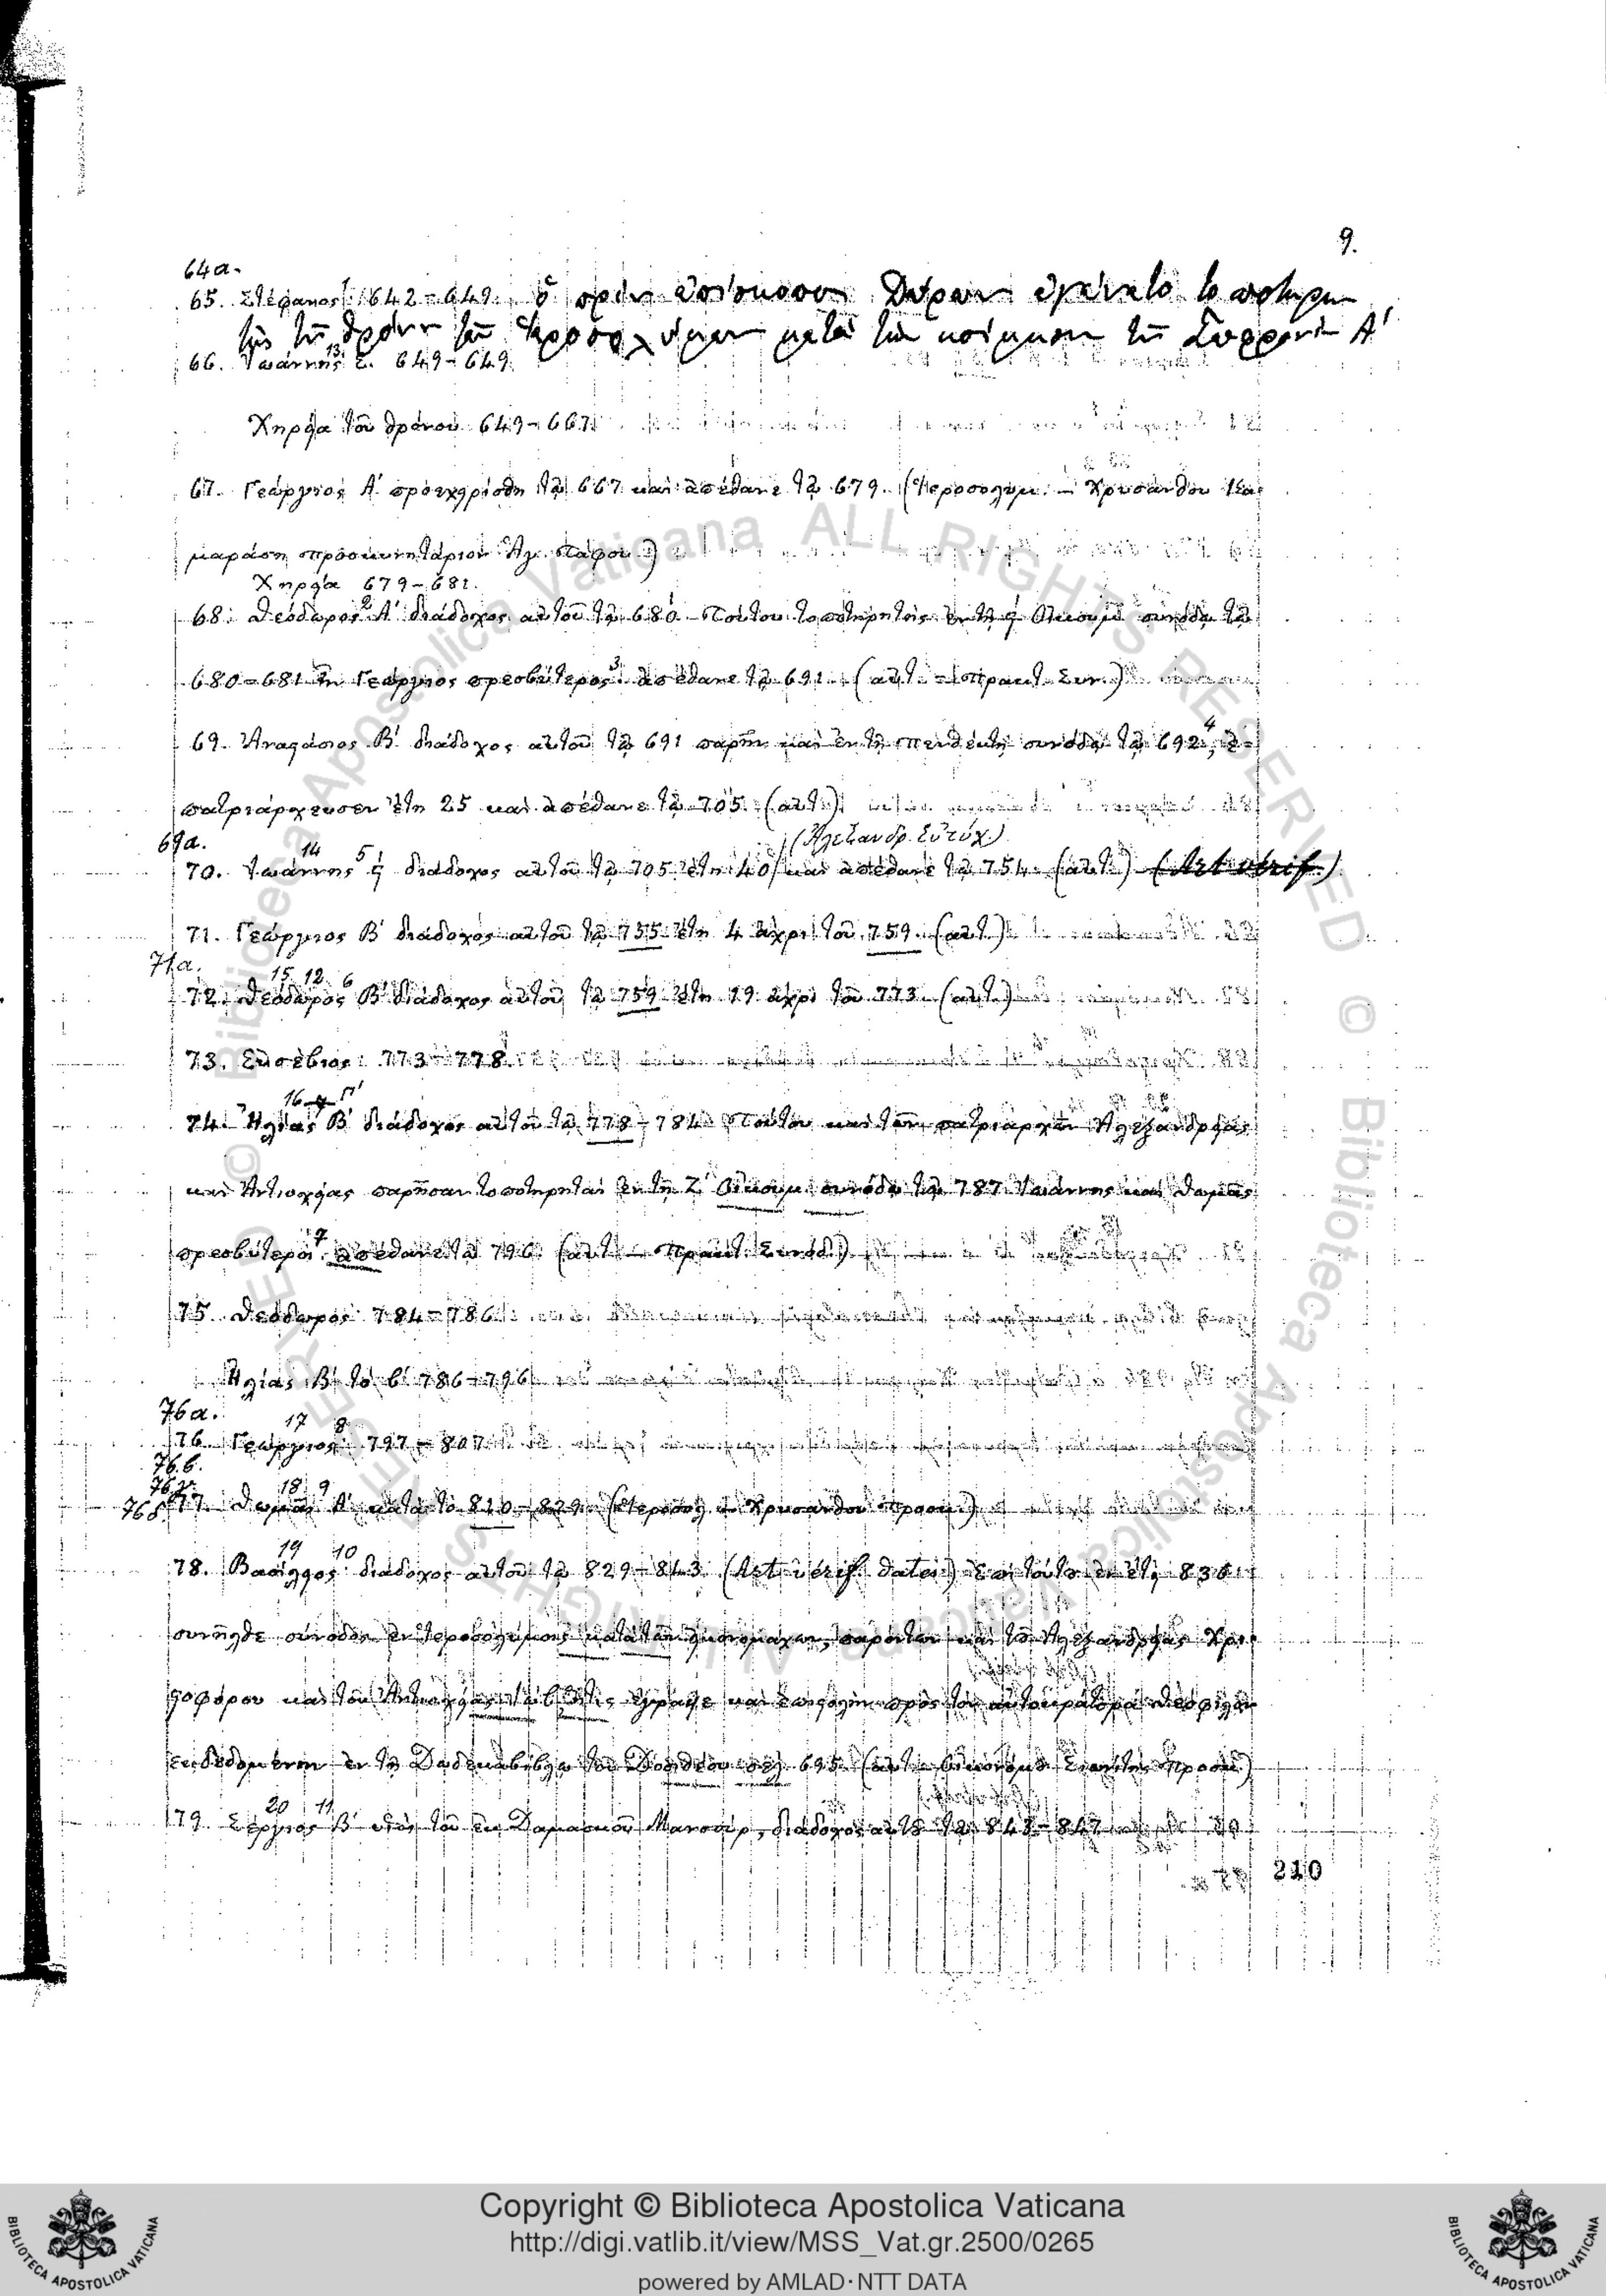 9.
64α.
65. Στέφανος 642-649. ὁ πρώην ἐπίσκοπος Δώρων ἐγένετο τοποτηρη-
τὴς τοῦ θρόνου τῶν Ἱεροσολύμων μετὰ τὴν κοίμησιν τοῦ Σωφρονίου Α΄
66. Ἰωάννης 649-649.
Χηρεία τοῦ θρόνου 649-667.
67. Γεώργιος Α΄ προεχειρίσθη τῷ 667 καὶ ἀπέθανε τῷ 679. (Ἱεροσολυμ. – Χρυσάνθου Κα-
μαράση προσκυνητάριον Ἁγ. Τάφου)
Χηρεία 679-681.
68. Θεόδωρος Α΄ διάδοχος αὐτοῦ τῷ 680 τούτου τοποτηρητὴς ἐν τῇ Οἰκουμ. συνόδῳ τῷ
680-681 ἦν Γεώργιος πρεσβύτερος 3 ἀπέθανε τῷ 691. (αὐτ. – Πρακτ. Συν.)
69. Ἀναστάσιος Β΄ διάδοχος αὐτοῦ τῷ 691 παρῆν καὶ ἐν τῇ πενθέκτῃ συνόδῳ τῷ 692 4, ἐ-
πατριάρχευσεν ἔτη 25 καὶ ἀπέθανε τῷ 705. (αὐτ.)
69α. (Ἀλεξανδρ. Εὐτύχ.)
70. Ἰωάννης 14 5 διάδοχος αὐτοῦ τῷ 705 ἔτη 40 καὶ ἀπέθανε τῷ 754. (αὐτ.) (Art vérif.)
71. Γεώργιος Β΄ διάδοχος αὐτοῦ τῷ 755 ἔτη 4 ἄχρι τοῦ 759. (αὐτ.)
71α. 15 12 6
72. Θεόδωρος Β΄ διάδοχος αὐτοῦ τῷ 759 ἔτη 19 ἄχρι τοῦ 773 (αὐτ.)
73. Εὐσέβιος 773-778.
16
74. Ἠλίας Β΄ διάδοχος αὐτοῦ τῷ 778-784 τούτου καὶ τῶν πατριαρχῶν Ἀλεξανδρείας
καὶ Ἀντιοχείας παρῆσαν τοποτηρηταὶ ἐν τῇ Ζ΄ Οἰκουμ. συνόδῳ τῷ 787 Ἰωάννης καὶ Θωμᾶς
πρεσβύτεροι 7 ἀπέθανε τῷ 796. (αὐτ. – Πρακτ. Συνόδ.)
75. Θεόδωρος 784-786.
Ἠλίας Β΄ τὸ β΄ 786-796
76α. 17 8
76. Γεώργιος 797-807
76.β.
76γ. 18 9
76δ. 77. Θωμᾶς Α΄ κατὰ τὸ 810-829. (Ἱεροσολ. – Χρυσάνθου προσκ.)
19 10
78. Βασίλειος διάδοχος αὐτοῦ τῷ 829-843 (Art vérif. dates) ἐπὶ τούτου ἐν ἔτει 836
συνῆλθε σύνοδος ἐν Ἱεροσολύμοις κατὰ τῶν εἰκονομάχων, παρόντων καὶ τοῦ Ἀλεξανδρείας Χρι-
στοφόρου καὶ τοῦ Ἀντιοχείας ἔγραψε καὶ ἐπιστολὴν πρὸς τὸν αὐτοκράτορα Θεόφιλον
ἐκδεδομένην ἐν τῇ Δωδεκαβίβλῳ τοῦ Δοσιθέου σελ. 695.
20 11
79. Σέργιος Β΄ υἱὸς τοῦ ἐκ Δαμασκοῦ Μανσούρ, διάδοχος αὐτοῦ τῷ 843-847
210
© Biblioteca Apostolica Vaticana ALL RIGHTS RESERVED
Copyright © Biblioteca Apostolica Vaticana
http://digi.vatlib.it/view/MSS_Vat.gr.2500/0265
powered by AMLAD·NTT DATA
BIBLIOTECA APOSTOLICA VATICANA
BIBLIOTECA APOSTOLICA VATICANA